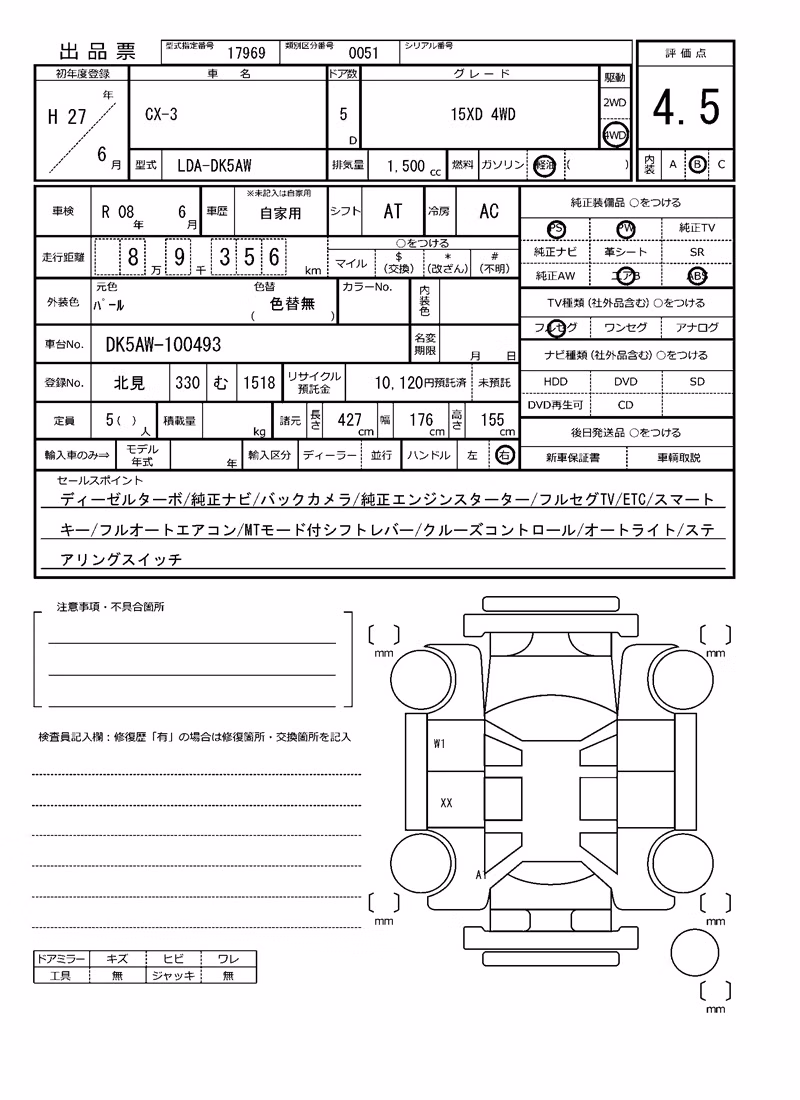 出品票 型式指定番号 17969 類別区分番号 0051 シリアル番号
評価点
4.5
内装 A B C
初年度登録 車名 ドア数 グレード 駆動
H 27 年 6 月 CX-3 5 D 15XD 4WD 2WD 4WD
型式 LDA-DK5AW 排気量 1,500 cc 燃料 ガソリン 軽油 ( )
車検 R 08 年 6 月 車歴 ※未記入は自家用 自家用 シフト AT 冷房 AC
走行距離 8 万 9 千 3 5 6 km ○をつける マイル $ (交換) * (改ざん) # (不明)
外装色 元色 パール 色替 ( 色替無 ) カラーNo. 内装色
車台No. DK5AW-100493 名変期限 月 日
登録No. 北見 330 む 1518 リサイクル預託金 10,120円預託済 未預託
定員 5( ) 人 積載量 kg 諸元 長さ 427 cm 幅 176 cm 高さ 155 cm
輸入車のみ⇒ モデル年式 年 輸入区分 ディーラー 並行 ハンドル 左 右
純正装備品 ○をつける
PS PW 純正TV
純正ナビ 革シート SR
純正AW エアB ABS
TV種類(社外品含む)○をつける
フルセグ ワンセグ アナログ
ナビ種類(社外品含む)○をつける
HDD DVD SD
DVD再生可 CD
後日発送品 ○をつける
新車保証書 車輌取説
セールスポイント
ディーゼルターボ/純正ナビ/バックカメラ/純正エンジンスターター/フルセグTV/ETC/スマート
キー/フルオートエアコン/MTモード付シフトレバー/クルーズコントロール/オートライト/ステ
アリングスイッチ
注意事項・不具合箇所
検査員記入欄：修復歴「有」の場合は修復箇所・交換箇所を記入
ドアミラー キズ ヒビ ワレ
工具 無 ジャッキ 無
mm mm
W1
XX
A1
mm mm
mm